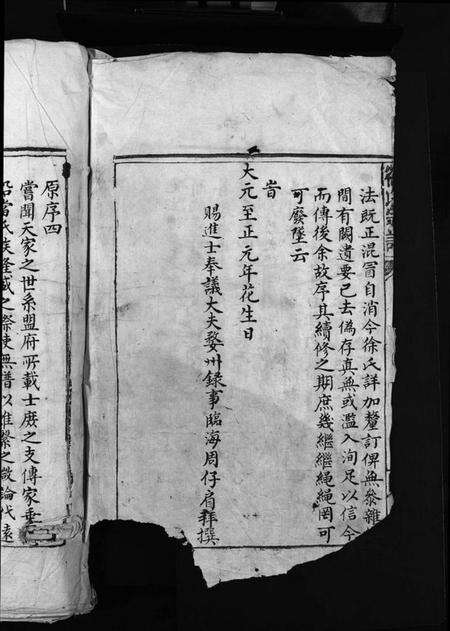 法既正混冒自消今徐氏詳加釐訂俾無參雜
間有闕遺要已去偽存真無或濫入洵足以信今
而傳後余故序其續修之期庶幾繼繼繩繩罔可
可廢墜云
旹
大元至正元年花生日
賜進士奉議大夫婺州錄事臨海周仔肩拜撰
原序四
嘗聞天家之世系盟府所載士庶之支傳家垂
氏族隆盛之際使無譜以維繫之敬論代遠